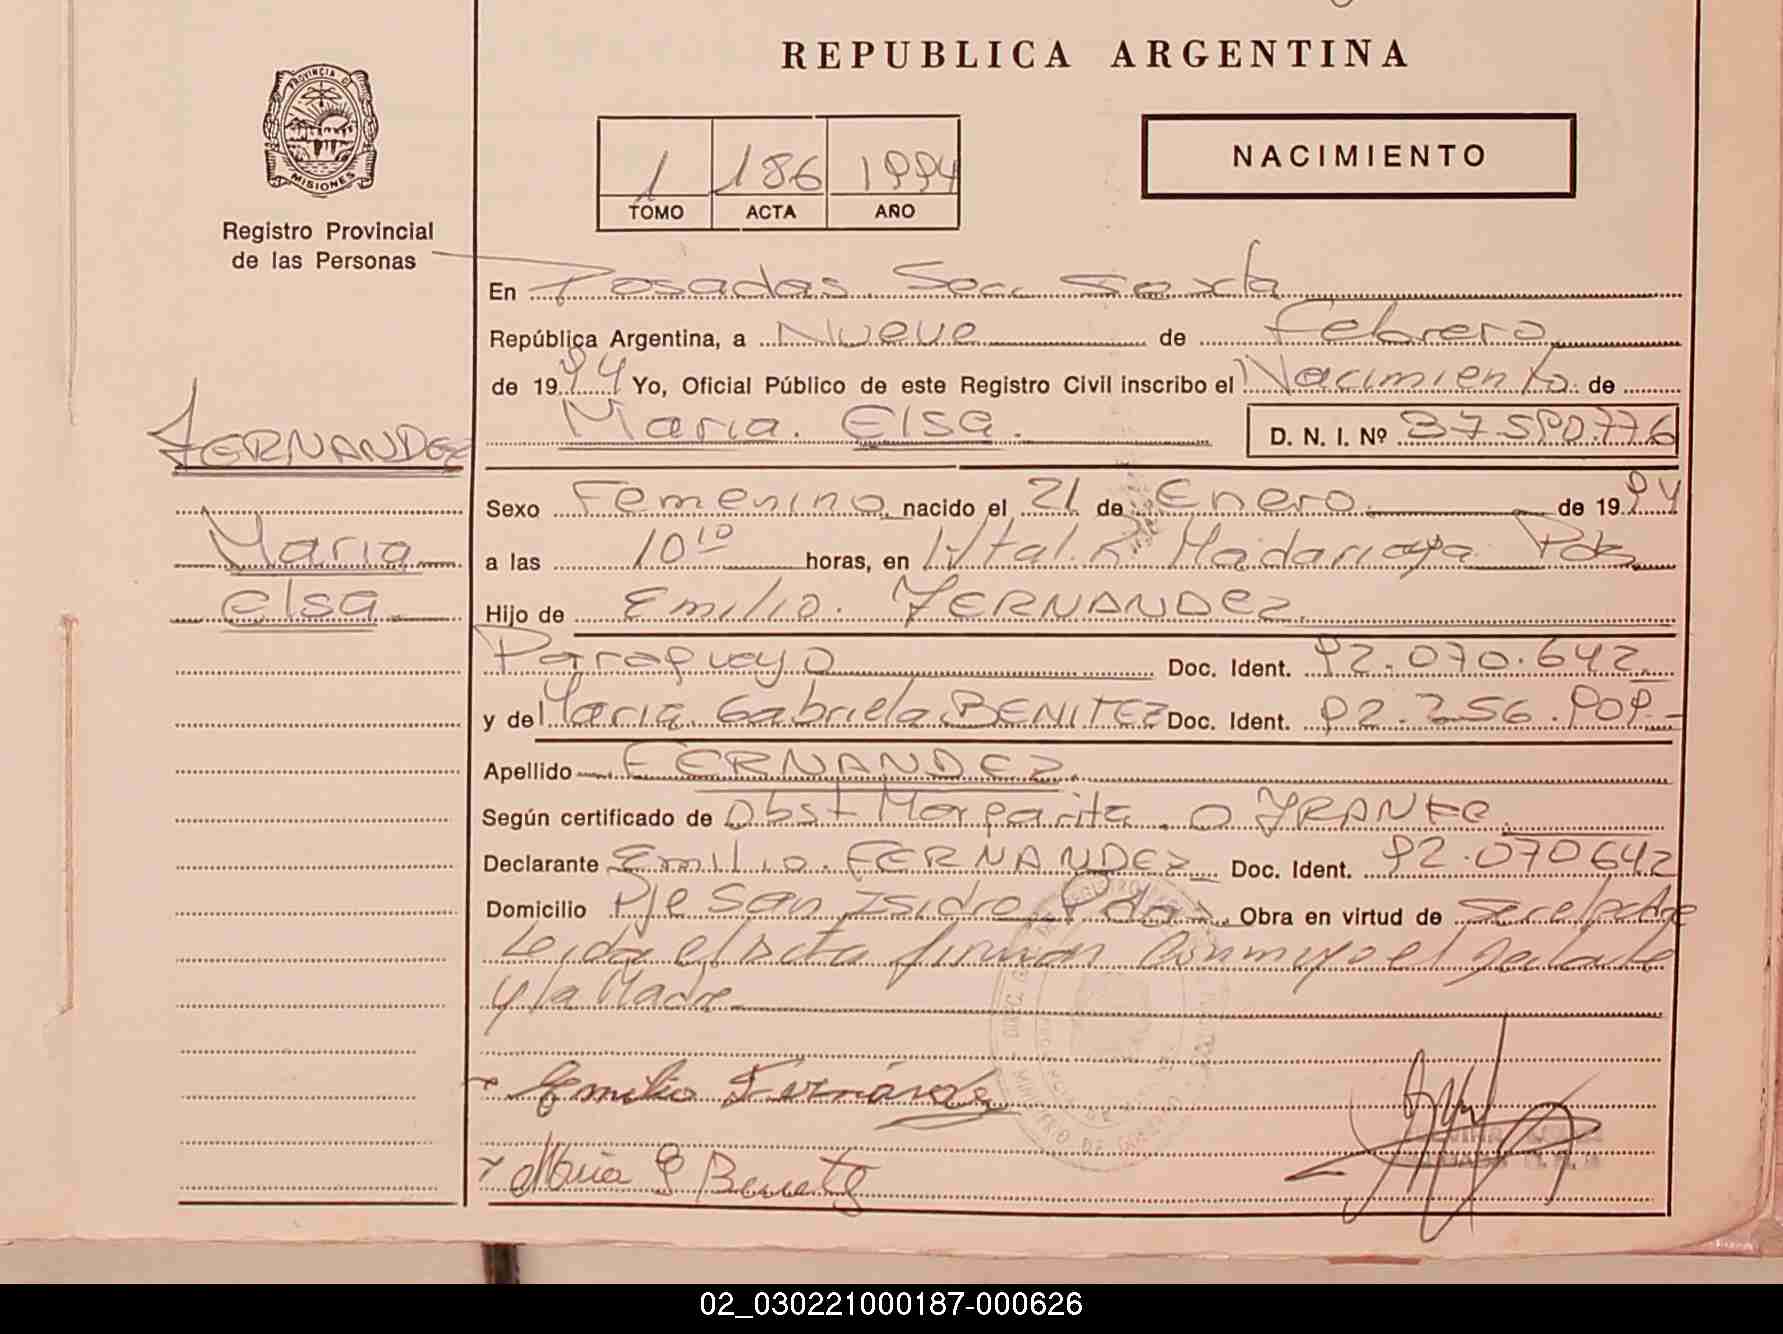 REPUBLICA ARGENTINA
PROVINCIA DE
MISIONES
Registro Provincial
de las Personas
1 186 1994
TOMO ACTA AÑO
NACIMIENTO
En Posadas Secc Sexta
República Argentina, a Nueve de Febrero
de 1994 Yo, Oficial Público de este Registro Civil inscribo el Nacimiento de
Maria Elsa. D. N. I. Nº
FERNANDEZ
Maria
Elsa.
Sexo Femenino nacido el 21 de Enero de 1994
a las 10 10 horas, en Hital. R Madariaga Pdas
Hijo de Emilio. FERNANDEZ.
Paraguayo Doc. Ident. 92.070.642.
y de Maria Gabriela BENITEZ Doc. Ident. 92.256.909.-
Apellido FERNANDEZ.
Según certificado de Obst Margarita O FRANKE.
Declarante Emilio. FERNANDEZ Doc. Ident. 92.070642
Domicilio Pje San Isidro Pdas. Obra en virtud de
Leida el Acta firman Conmigo el
y la Madre
Emilio Fernández
Maria G Benitez
02_030221000187-000626